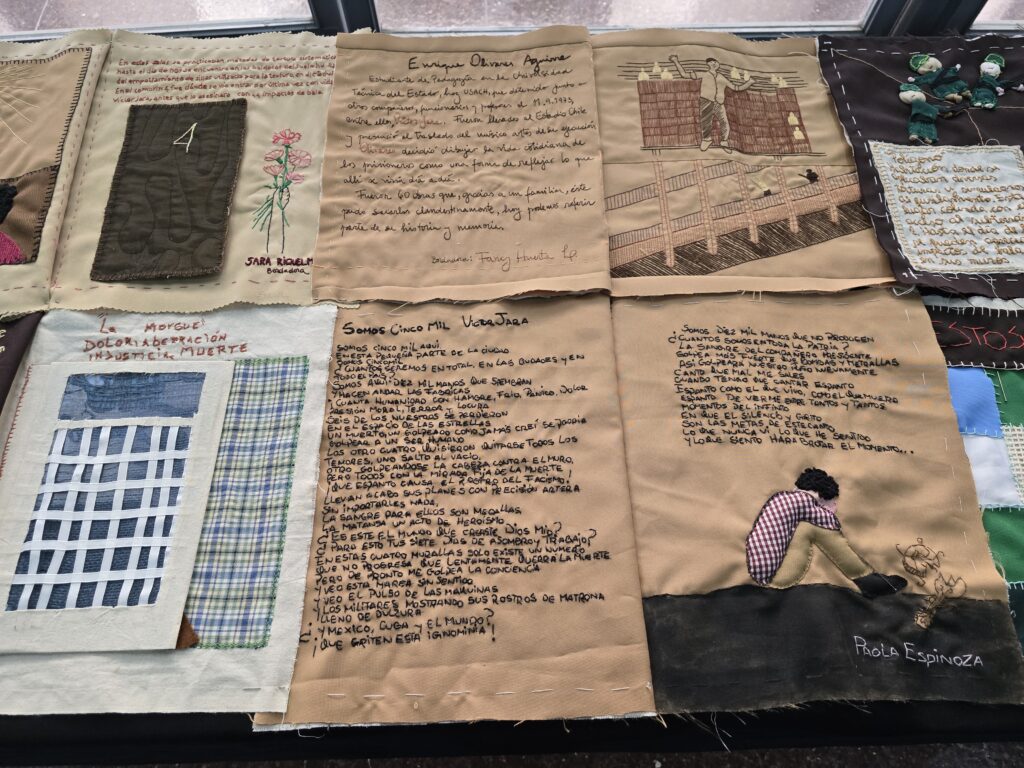 En estas salas se practicaban métodos de tortura sistemática
hasta el día de hoy se encuentra en las baldosas del pasillo
Victor Jara, antes que lo asesinaran con 44 impactos de bala.
4
SARA RIQUELM
Bordadora
Enrique Olivares Aguirre
Estudiante de Pedagogía en la Universidad
Técnica del Estado, hoy USACH, fue detenido junto a
otros compañeros, funcionarios y profesores el 11.9.1973,
entre ellos, Víctor Jara. Fueron llevados al Estadio Chile
y presenció el traslado del músico antes de su ejecución
Olivares decidió dibujar la vida cotidiana de
los prisioneros como una forma de reflejar lo que
allí se vivía día a día.
Fueron 60 obras que, gracias a un familiar, éste
pudo sacarlas clandestinamente, hoy podemos referir
parte de su historia y memoria.
Fanny Huerta
"La Morgue"
DOLOR, ABERRACIÓN
INJUSTICIA MUERTE
SOMOS CINCO MIL VICTOR JARA
SOMOS CINCO MIL AQUÍ
EN ESTA PEQUEÑA PARTE DE LA CIUDAD
SOMOS CINCO MIL
¿CUÁNTOS SEREMOS EN TOTAL, EN LAS CIUDADES Y EN
TODO EL PAÍS?
SOMOS AQUÍ DIEZ MIL MANOS QUE SIEMBRAN
Y HACEN ANDAR LAS FABRICAS
CUANTA HUMANIDAD CON HAMBRE, FRÍO, PANICO, DOLOR
PRESIÓN MORAL, TERROR, LOCURA
SEIS DE LOS NUESTROS SE PERDIERON
EN EL ESPACIO DE LAS ESTRELLAS
UN MUERTO, UN GOLPEADO COMO JAMÁS CREÍ SE PODRÍA
GOLPEAR A UN SER HUMANO
LOS OTRO CUATRO QUISIERON QUITARSE TODOS LOS
TEMORES, UNO SALTO AL VACÍO,
OTRO GOLPEANDOSE LA CABEZA CONTRA EL MURO,
PERO TODOS CON LA MIRADA FIJA DE LA MUERTE
¡QUE ESPANTO CAUSA EL ROSTRO DEL FACISMO!
LLEVAN A CABO SUS PLANES CON PRECISIÓN ARTERA
SIN IMPORTARLES NADA,
LA SANGRE PARA ELLOS SON MEDALLAS
LA MATANZA UN ACTO DE HEROISMO
¿ES ESTE EL MUNDO QUE CREASTE DIOS MÍO?
¿PARA ESTO TUS SIETE DÍAS DE ASOMBRO Y TRABAJO?
EN ESTAS CUATRO MURALLAS SOLO EXISTE UN NUMERO
QUE NO PROGRESA QUE LENTAMENTE QUERRA LA MUERTE
PERO DE PRONTO ME GOLPEA LA CONCIENCIA
Y VEO ESTA MAREA SIN SENTIDO
Y VEO EL PULSO DE LAS MAQUINAS
Y LOS MILITARES MOSTRANDO SUS ROSTROS DE MATRONA
LLENO DE DULZURA
¿Y MEXICO, CUBA Y EL MUNDO?
¡QUE GRITEN ESTA IGNOMINIA!
SOMOS DIEZ MIL MANOS QUE NO PRODUCEN
¿CUANTOS SOMOS EN TODA LA PATRIA?
LA SANGRE DEL COMPAÑERO PRESIDENTE
GOLPEA MAS FUERTE QUE BOMBAS Y METRALLAS
ASI GOLPEARA NUESTRO PUÑO NUEVAMENTE
CANTO QUE MAL ME SALES
CUANDO TENGO QUE CANTAR ESPANTO
ESPANTO COMO EL QUE VIVO, COMO EL QUE MUERO
ESPANTO DE VERME ENTRE TANTOS Y TANTOS
MOMENTOS DEL INFINITO
EN QUE EL SILENCIO Y EL GRITO
SON LAS METAS DE ESTE CANTO
LO QUE NUNCA VI, LO QUE HE SENTIDO
Y LO QUE SIENTO HARÁ BROTAR EL MOMENTO...
PAOLA ESPINOZA
STOS